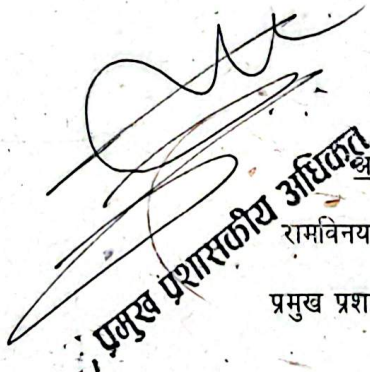 प्रमुख प्रशासकीय अधिकृत
रामविनय
प्रमुख प्रश